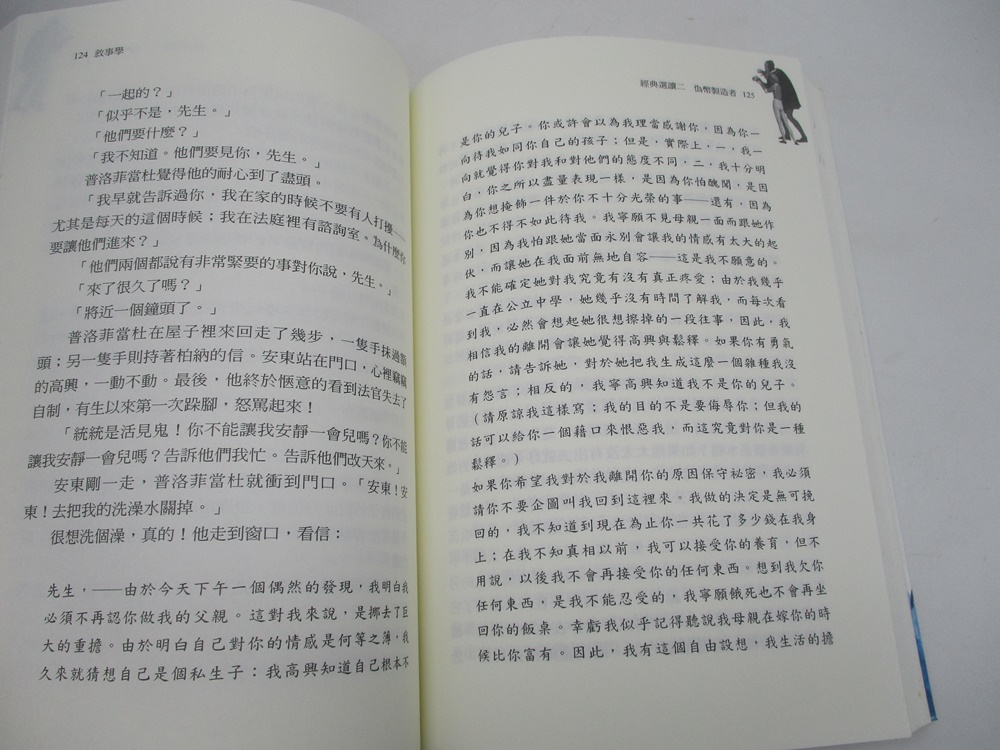 124 敘事學
「一起的？」
「似乎不是，先生。」
「他們要什麼？」
「我不知道。他們要見你，先生。」
普洛菲當杜覺得他的耐心到了盡頭。
「我早就告訴過你，我在家的時候不要有人打擾——
尤其是每天的這個時候；我在法庭裡有諮詢室。為什麼你
要讓他們進來？」
「他們兩個都說有非常緊要的事對你說，先生。」
「來了很久了嗎？」
「將近一個鐘頭了。」
普洛菲當杜在屋子裡來回走了幾步，一隻手抹過額
頭；另一隻手則持著柏納的信。安東站在門口，心裡竊竊
的高興，一動不動。最後，他終於愜意的看到法官失去了
自制，有生以來第一次跺腳，怒罵起來！
「統統是活見鬼！你不能讓我安靜一會兒嗎？你不能
讓我安靜一會兒嗎？告訴他們我忙。告訴他們改天來。」
安東剛一走，普洛菲當杜就衝到門口。「安東！安
東！去把我的洗澡水關掉。」
很想洗個澡，真的！他走到窗口，看信：
先生，——由於今天下午一個偶然的發現，我明白我
必須不再認你做我的父親。這對我來說，是挪去了巨
大的重擔。由於明白自己對你的情感是何等之薄，我
久來就猜想自己是個私生子；我高興知道自己根本不
經典選讀二 偽幣製造者 125
是你的兒子。你或許會以為我理當感謝你，因為你一
向待我如同你自己的孩子；但是，實際上，一，我一
向就覺得你對我和對他們的態度不同，二，我十分明
白，你之所以盡量表現一樣，是因為你怕醜聞，是因
為你想掩飾一件於你不十分光榮的事——還有，因為
你也不得不如此待我。我寧願不見母親一面而跟她作
別，因為我怕跟她當面永別會讓我的情感有太大的起
伏，而讓她在我面前無地自容——這是我不願意的。
我不能確定她對我究竟有沒有真正疼愛；由於我幾乎
一直在公立中學，她幾乎沒有時間了解我，而每次看
到我，必然會想起她很想擦掉的一段往事，因此，我
相信我的離開會讓她覺得高興與鬆釋。如果你有勇氣
的話，請告訴她，對於她把我生成這麼一個雜種我沒
有怨言；相反的，我寧高興知道我不是你的兒子。
（請原諒我這樣寫；我的目的不是要侮辱你；但我的
話可以給你一個藉口來恨惡我，而這究竟對你是一種
鬆釋。）
如果你希望我對於我離開你的原因保守祕密，我必須
請你不要企圖叫我回到這裡來。我做的決定是無可挽
回的，我不知道到現在為止你一共花了多少錢在我身
上；在我不知真相以前，我可以接受你的養育，但不
用說，以後我不會再接受你的任何東西。想到我欠你
任何東西，是我不能忍受的，我寧願餓死也不會再坐
回你的飯桌。幸虧我似乎記得聽說我母親在嫁你的時
候比你富有。因此，我有這個自由設想，我生活的擔